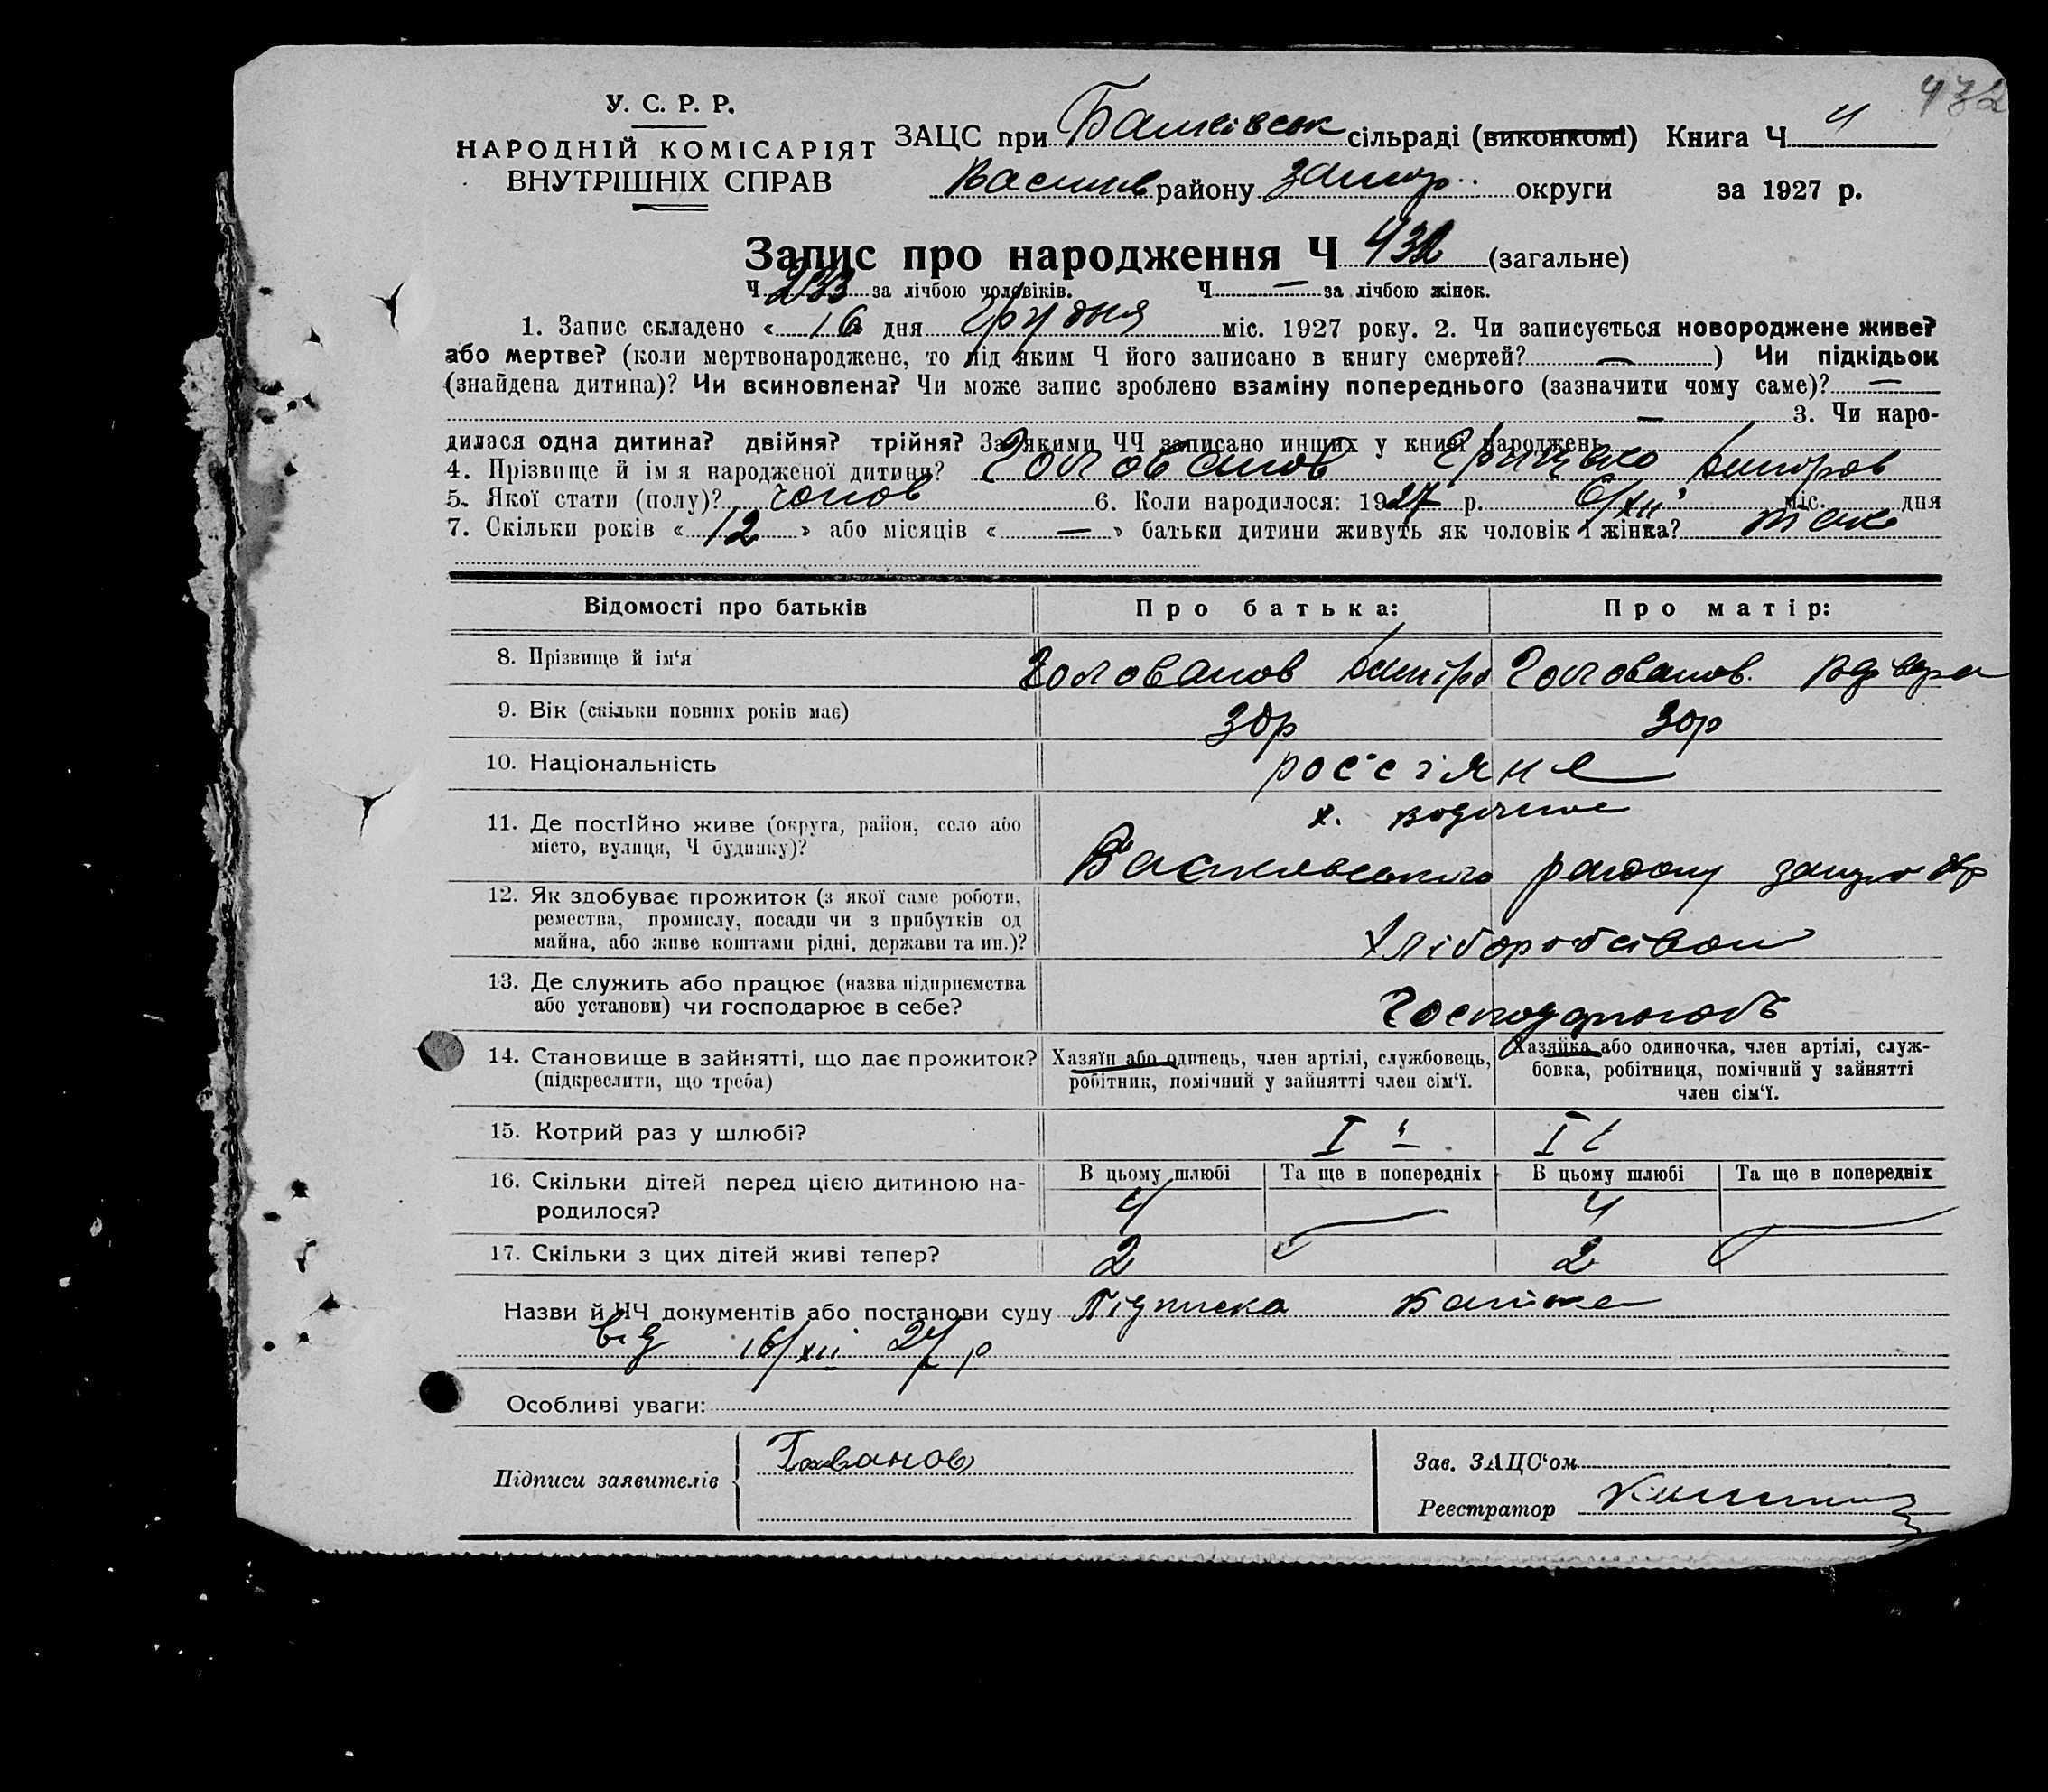 432
У. С. Р. Р.
НАРОДНІЙ КОМІСАРІЯТ
ВНУТРІШНІХ СПРАВ
ЗАЦС при сільраді (виконкомі) Книга Ч 4
Василів району Запор. округи за 1927 р.
Запис про народження Ч 432 (загальне)
Ч 233 за лічбою чоловіків. Ч — за лічбою жінок.
1. Запис складено « 16 дня Грудня міс. 1927 року. 2. Чи записується новороджене живе?
або мертве? (коли мертвонароджене, то під яким Ч його записано в книгу смертей? — ) Чи підкідьок
(знайдена дитина)? Чи всиновлена? Чи може запис зроблено взаміну попереднього (зазначити чому саме)? —
— 3. Чи наро-
дилася одна дитина? двійня? трійня? За якими ЧЧ записано инших у книзі народжень
4. Прізвище й ім я народженої дитини? Голованов Грицько Дмитров
5. Якої стати (полу)? чолов 6. Коли народилося: 1927 р. 6/XII міс. дня
7. Скільки років « 12 » або місяців « — » батьки дитини живуть як чоловік і жінка? так
Відомості про батьків Про батька: Про матір:
8. Прізвище й ім‘я Голованов Дмитро Голованов. Варвара
9. Вік (скільки повних років має) 30р 30р
10. Національність россіяне
11. Де постійно живе (округа, район, село або
місто, вулиця, Ч будинку)? х. Водяное
Василівського району Запор окр
12. Як здобуває прожиток (з якої саме роботи,
ремества, промислу, посади чи з прибутків од
майна, або живе коштами рідні, держави та ин.)? Хліборобсівом
13. Де служить або працює (назва підприємства
або установи) чи господарює в себе? Господарюють
14. Становище в зайнятті, що дає прожиток?
(підкреслити, що треба)
Хазяїн або одинець, член артілі, службовець,
робітник, помічний у зайнятті член сім‘ї.
Хазяйка або одиночка, член артілі, служ-
бовка, робітниця, помічний у зайнятті
член сім‘ї.
15. Котрий раз у шлюбі? I I
16. Скільки дітей перед цією дитиною на-
родилося?
В цьому шлюбі Та ще в попередніх В цьому шлюбі Та ще в попередніх
4 4
17. Скільки з цих дітей живі тепер? 2 2
Назви й ЧЧ документів або постанови суду Підписка Батька
від 16/XII 27 р
Особливі уваги:
Підписи заявителів Голованов
Зав. ЗАЦС‘ом
Реєстратор